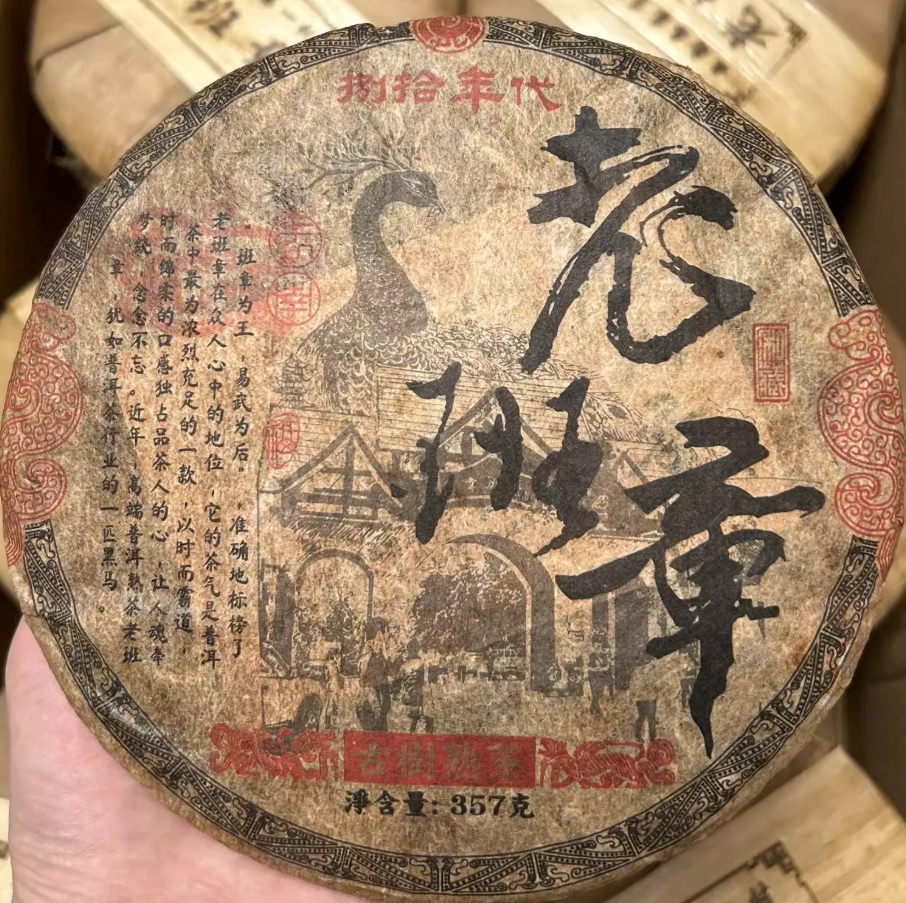 捌拾年代
老班章
"班章为王,易武为后",准确地标榜了
老班章在众人心中的地位,它的茶气是普洱
茶中最为浓烈充足的一款,以时而霸道,
时而绵柔的口感独占品茶人的心,让人魂牵
梦绕,念念不忘。近年,高端普洱熟茶老班
章,犹如普洱茶行业的一匹黑马。
古樹熟茶
淨含量:357克